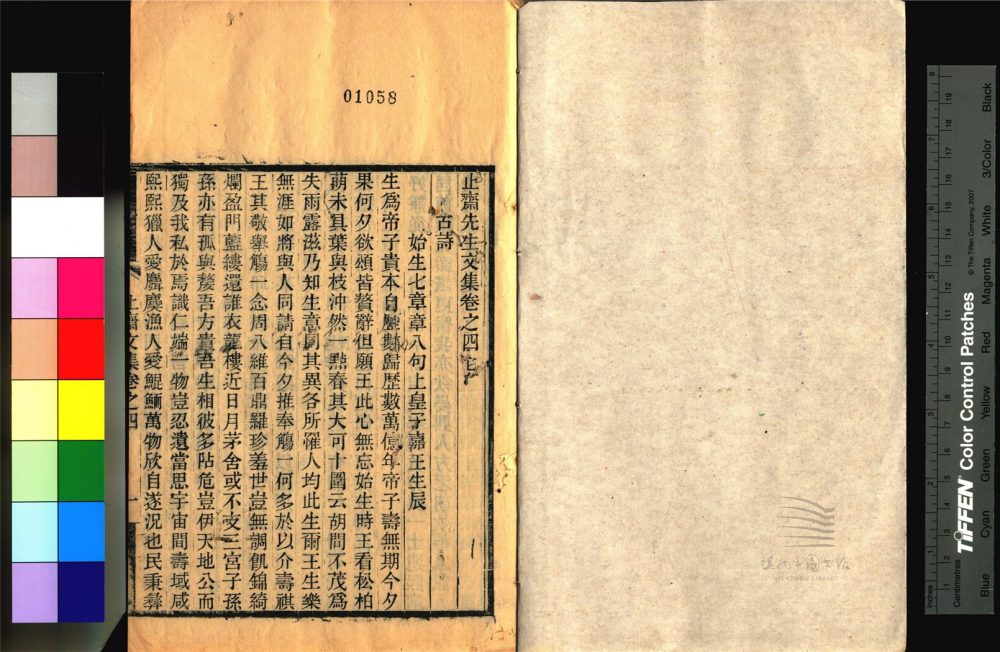 01058
止齋先生文集卷之四
古詩
始生七章章八句上皇子嘉王生辰
生爲帝子貴本自歷數歸歷數萬億年帝子壽無期今夕
果何夕欲頌皆贅辭但願王此心無忘始生時王看松柏
萌未具葉與枝沖然一點春其大可十圍云胡問不茂爲
失雨露滋乃知生意同其異各所罹人均此生爾王生樂
無涯如將與人同請自今夕推奉觴一何多於以介壽祺
王其敬舉觴一念周八維百鼎羅珍羞世豈無調飢錦綺
爛盈門藍縷還誰衣龍樓近日月茅舍或不支三宮子孫
孫亦有孤與嫠吾方貴吾生相彼多阽危豈伊天地公而
獨及我私於焉識仁端一物豈忍遺當思宇宙間壽域咸
熙熙獵人愛麛麌漁人愛鯤鮞萬物欣自遂況也民秉彝
止齋文集卷之四
一
WENZHOU LIBRARY
TIFFEN Color Control Patches
© The Tiffen Company, 2007
Inches
Centimetres
Blue Cyan Green Yellow Red Magenta White 3/Color Black